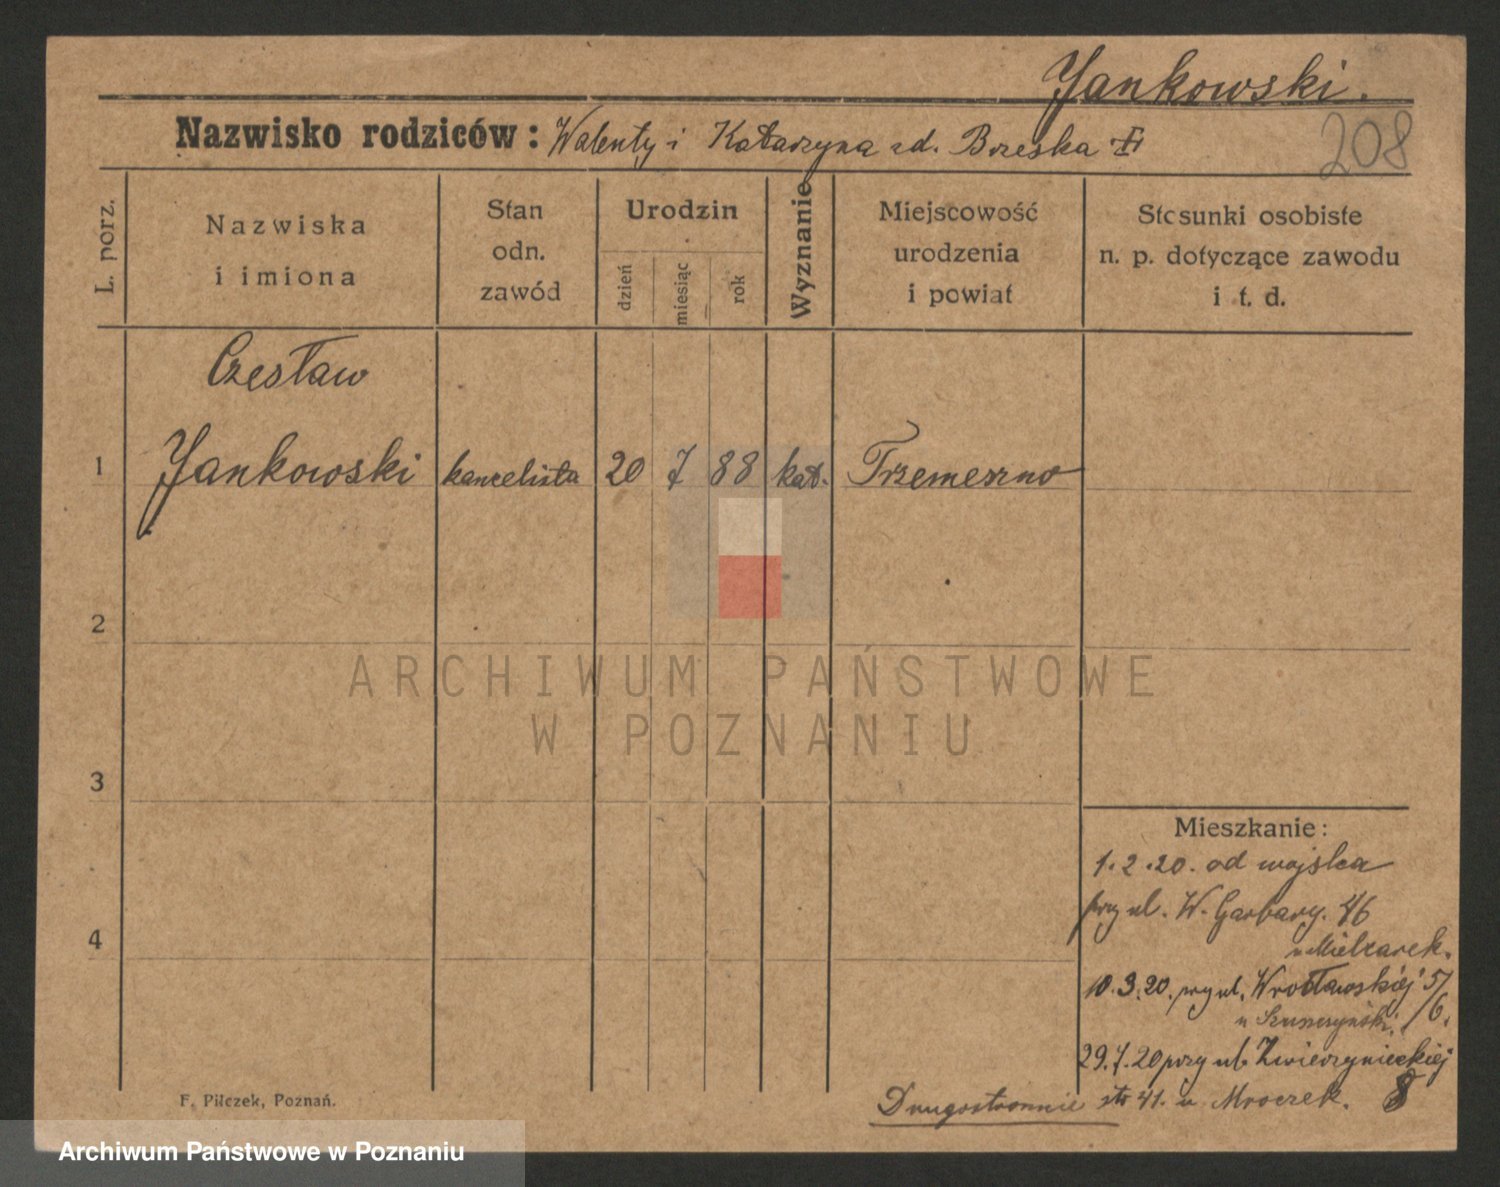 Jankowski.
Nazwisko rodziców: Walenty i Katarzyna zd. Brzeska
208
L. porz.
Nazwiska
i imiona
Stan
odn.
zawód
Urodzin
dzień
miesiąc
rok
Wyznanie
Miejscowość
urodzenia
i powiat
Stosunki osobiste
n. p. dotyczące zawodu
i t. d.
Czesław
1 Jankowski kancelista 20 7 88 kat. Trzemeszno
2
ARCHIWUM PAŃSTWOWE
W POZNANIU
3
Mieszkanie:
1.2.20. od wojska
przy ul. W. Garbary. 46
u Mielcarek.
10.3.20. przy ul. Wrocławskiej 5/6.
u
29.7.20 przy ul. Zwierzynieckiej
41. u Mroczek. 8
4
Drugostronnie
F. Pilczek, Poznań.
Archiwum Państwowe w Poznaniu